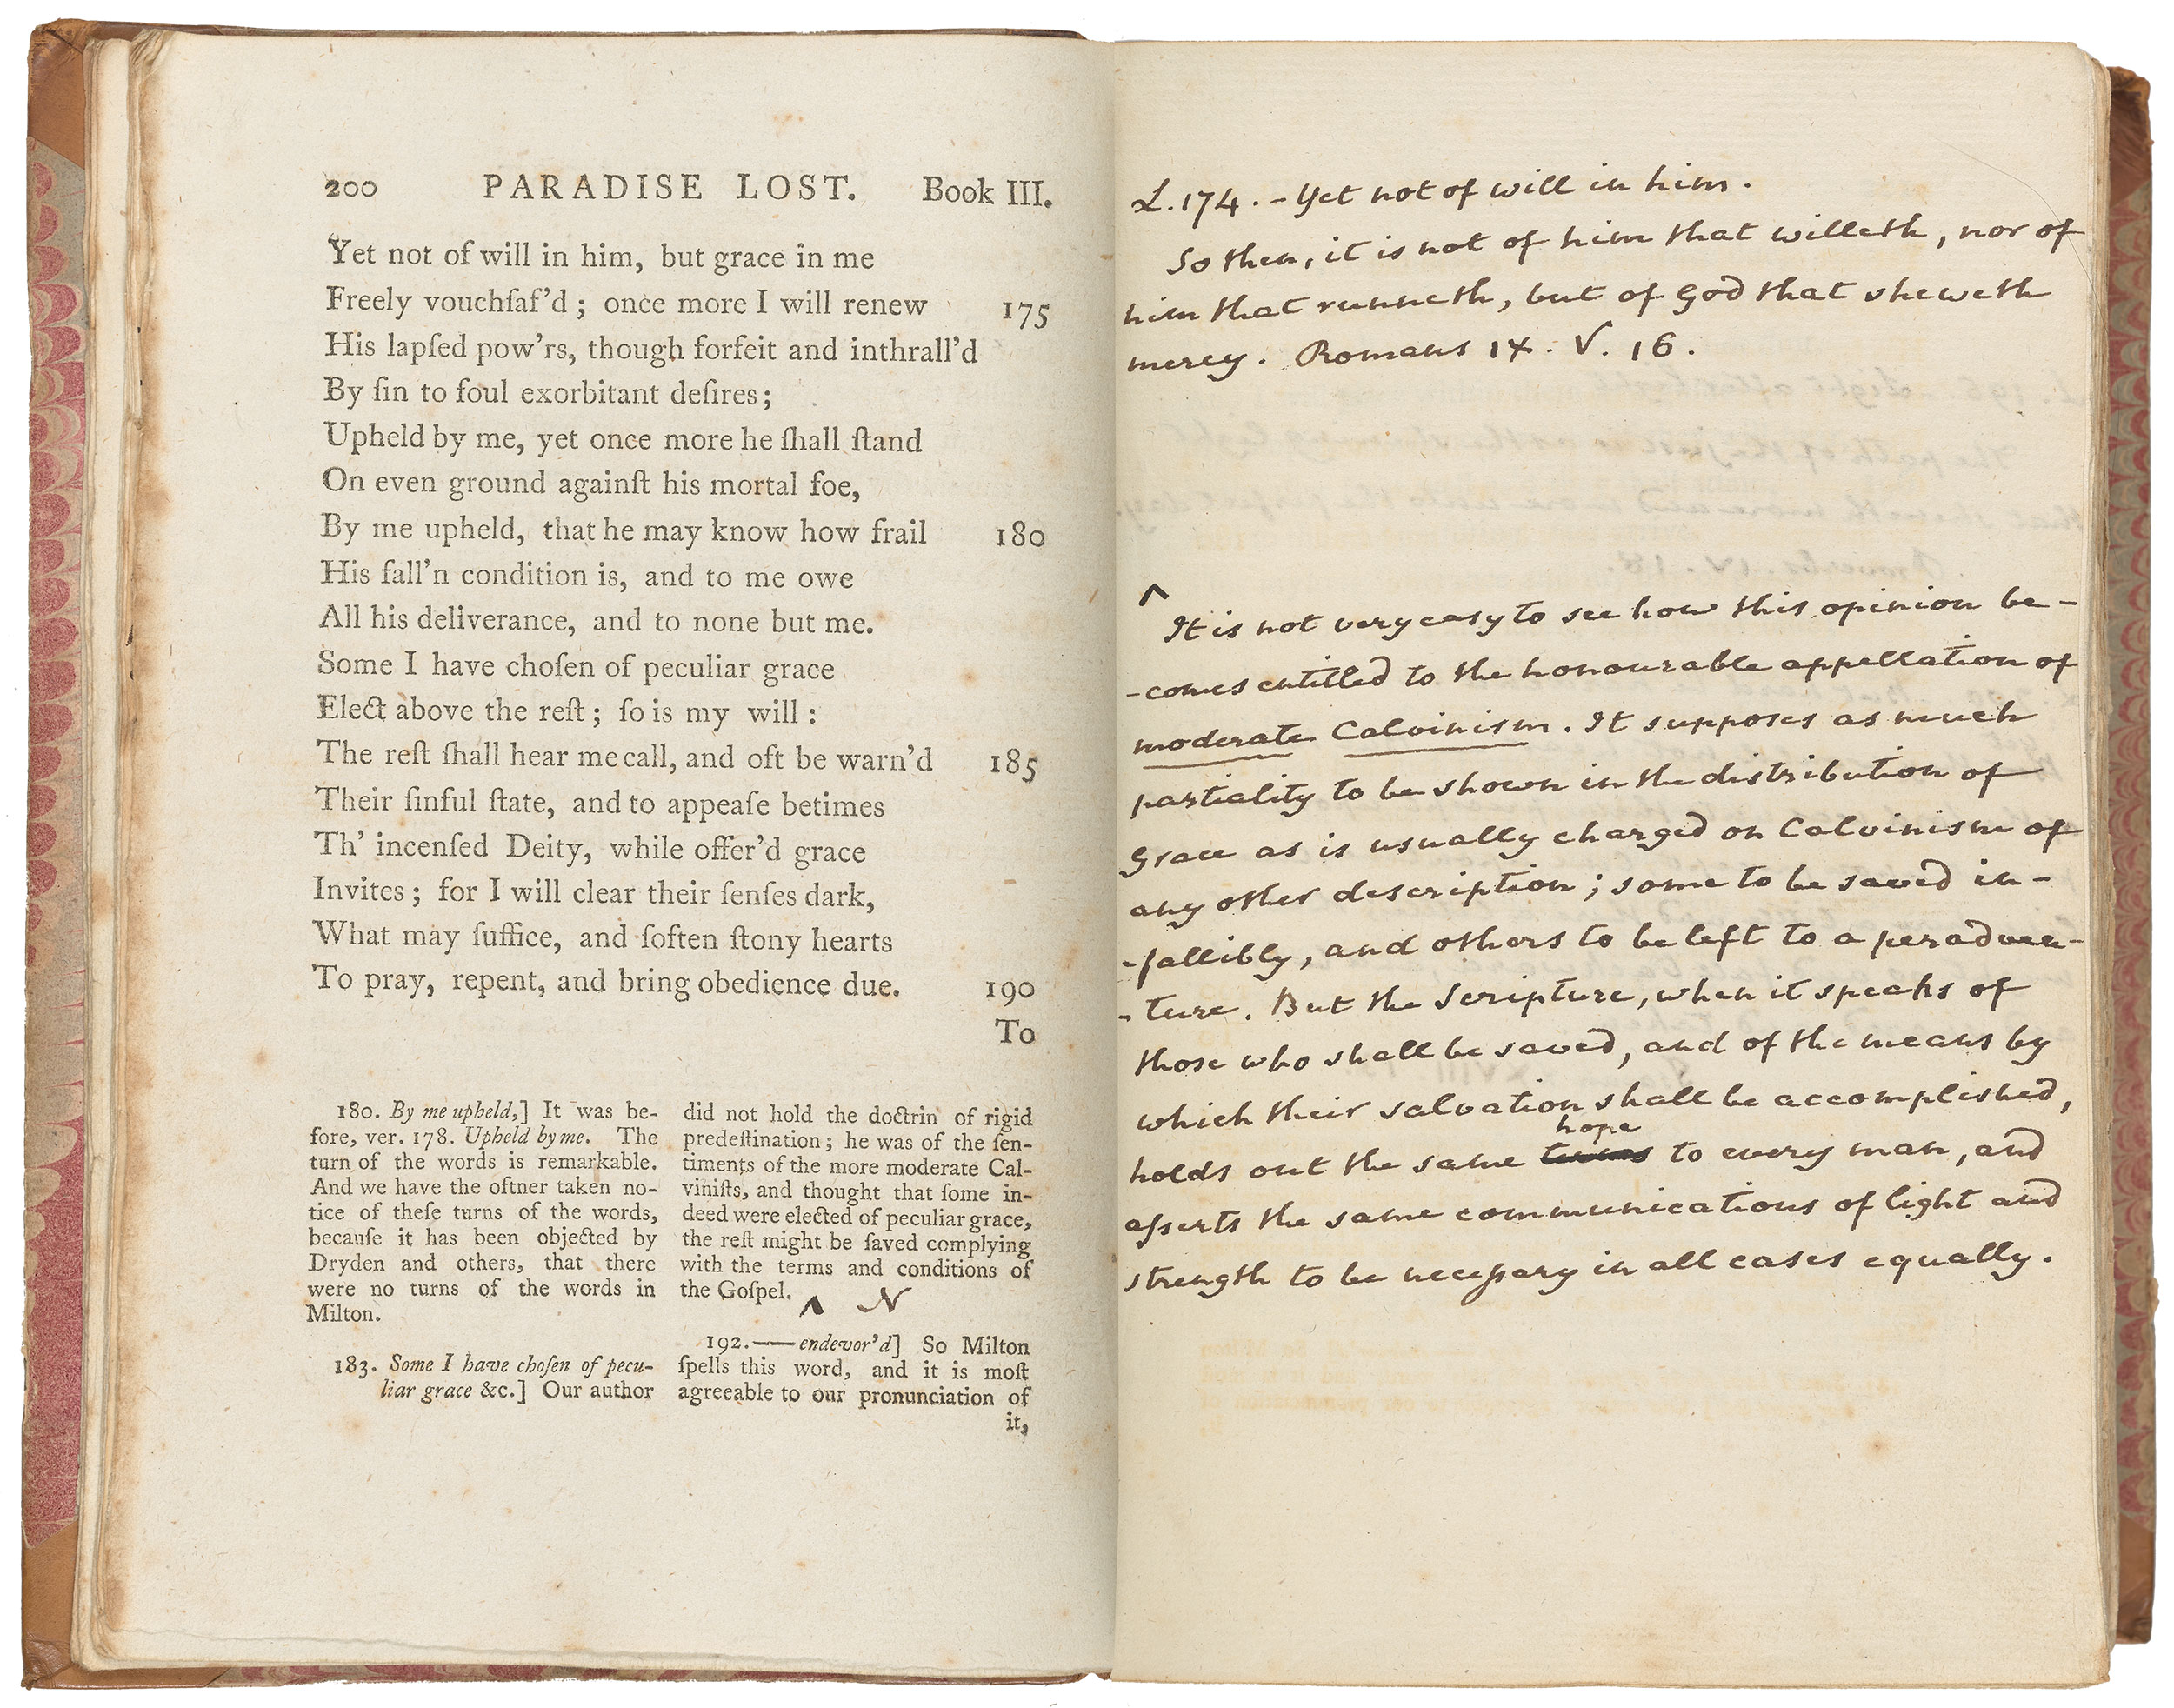 200 PARADISE LOST. Book III.
Yet not of will in him, but grace in me
Freely vouchſaf'd ; once more I will renew 175
His lapſed pow'rs, though forfeit and inthrall'd
By ſin to foul exorbitant deſires;
Upheld by me, yet once more he ſhall ſtand
On even ground againſt his mortal foe,
By me upheld, that he may know how frail 180
His fall'n condition is, and to me owe
All his deliverance, and to none but me.
Some I have choſen of peculiar grace
Elect above the reſt ; ſo is my will :
The reſt ſhall hear me call, and oft be warn'd 185
Their ſinful ſtate, and to appeaſe betimes
Th' incenſed Deity, while offer'd grace
Invites ; for I will clear their ſenſes dark,
What may ſuffice, and ſoften ſtony hearts
To pray, repent, and bring obedience due. 190
To
180. By me upheld,] It was be-
fore, ver. 178. Upheld by me. The
turn of the words is remarkable.
And we have the oftner taken no-
tice of theſe turns of the words,
becauſe it has been objected by
Dryden and others, that there
were no turns of the words in
Milton.
183. Some I have choſen of pecu-
liar grace &c.] Our author
did not hold the doctrin of rigid
predeſtination ; he was of the ſen-
timents of the more moderate Cal-
viniſts, and thought that ſome in-
deed were elected of peculiar grace,
the reſt might be ſaved complying
with the terms and conditions of
the Goſpel.
^ N
192.——endevor'd] So Milton
ſpells this word, and it is moſt
agreeable to our pronunciation of
it,
L. 174. - Yet not of will in him.
So then, it is not of him that willeth, nor of
him that runneth, but of God that sheweth
mercy. Romans IX. V. 16.
^
It is not very easy to see how this opinion be-
-comes entitled to the honourable appellation of
moderate Calvinism. It supposes as much
partiality to be shown in the distribution of
Grace as is usually charged on Calvinism of
any other description ; some to be saved in-
-fallibly, and others to be left to a peradven-
-ture. But the Scripture, when it speaks of
those who shall be saved, and of the means by
which their salvation shall be accomplished,
hope
holds out the same terms to every man, and
aſserts the same communications of light and
strength to be neceſsary in all cases equally.